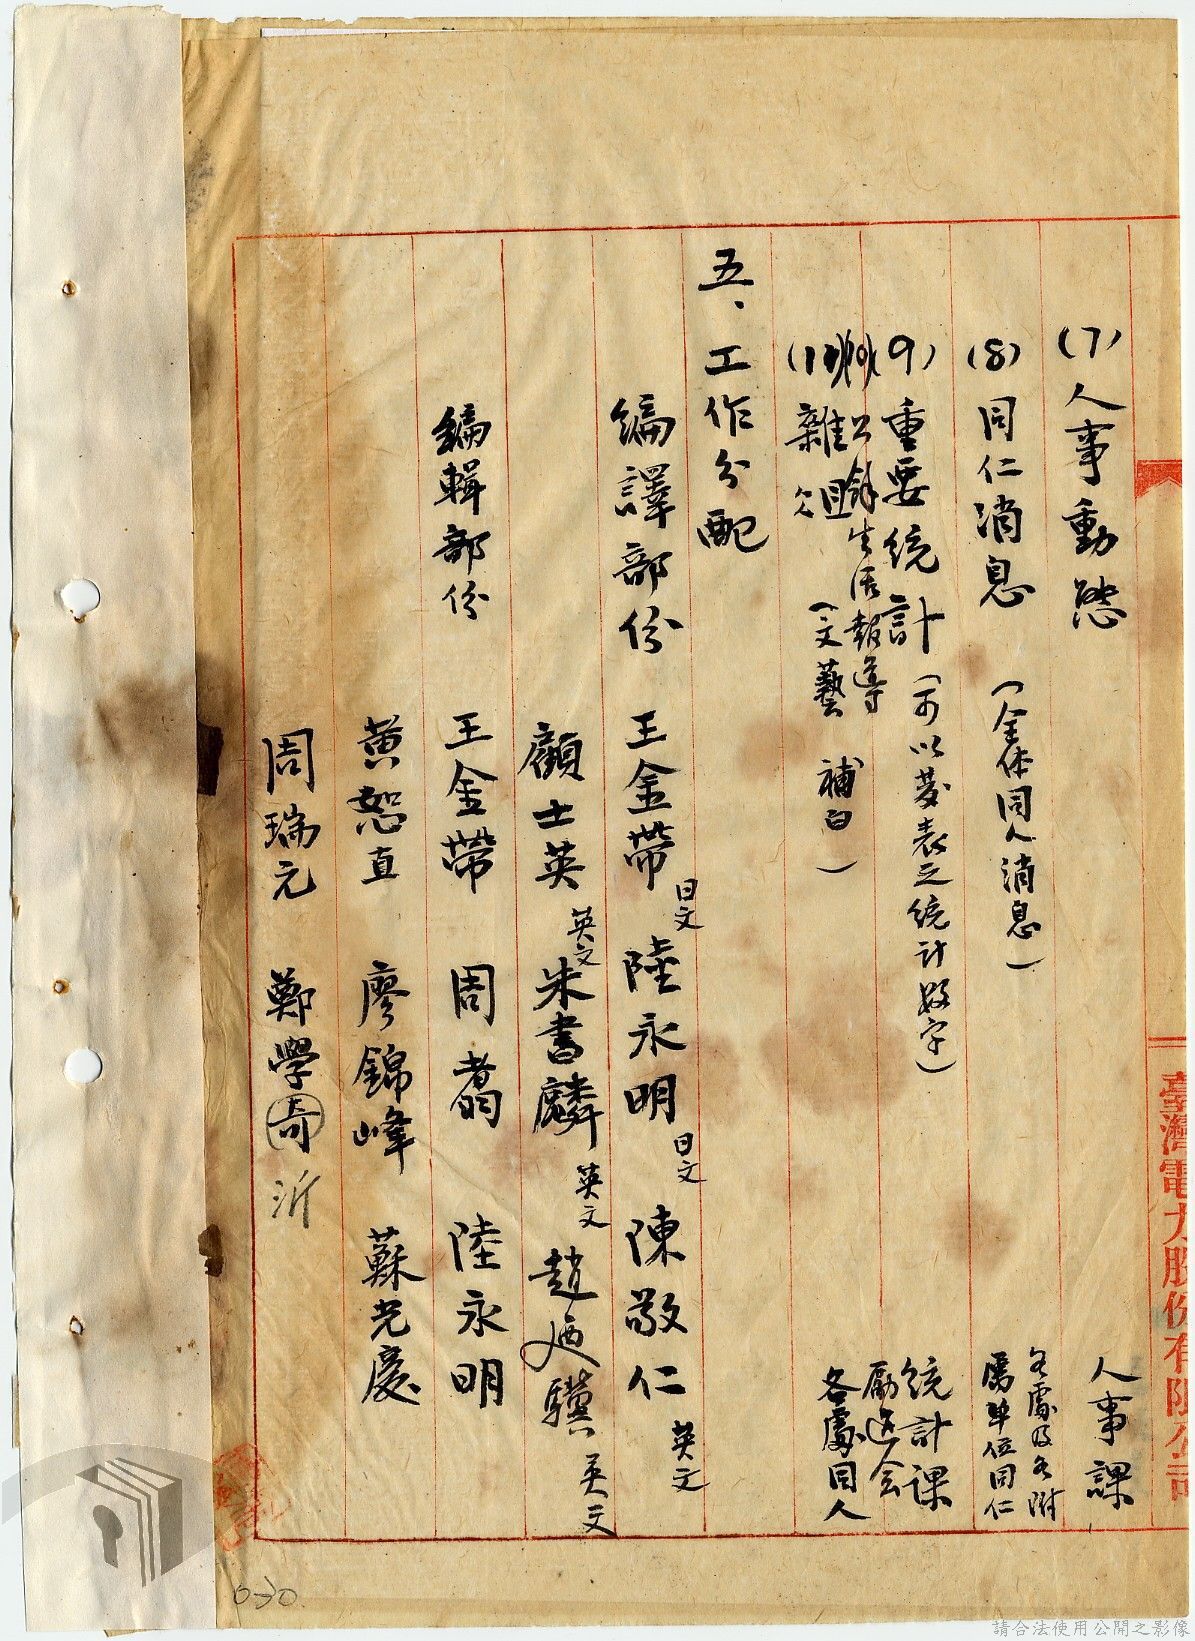 臺灣電力股份有限公司
(7)人事動態 人事課
(8)同仁消息 (全体同人消息) 各處及各附屬單位同仁
(9)重要統計 (可以發表之統計数字) 統計課
(10)公餘生活報導 勵進会
(11)雜俎 (文藝 補白) 各處同人
五、工作分配
編譯部份 王金帶 日文 陸永明 日文 陳敬仁 英文
顧士英 英文 朱書麟 英文 趙廼驥 英文
編輯部份 王金帶 周耆 陸永明
黄恕直 廖錦峰 蘇光慶
周瑞元 鄭學奇 沂
請合法使用公開之影像